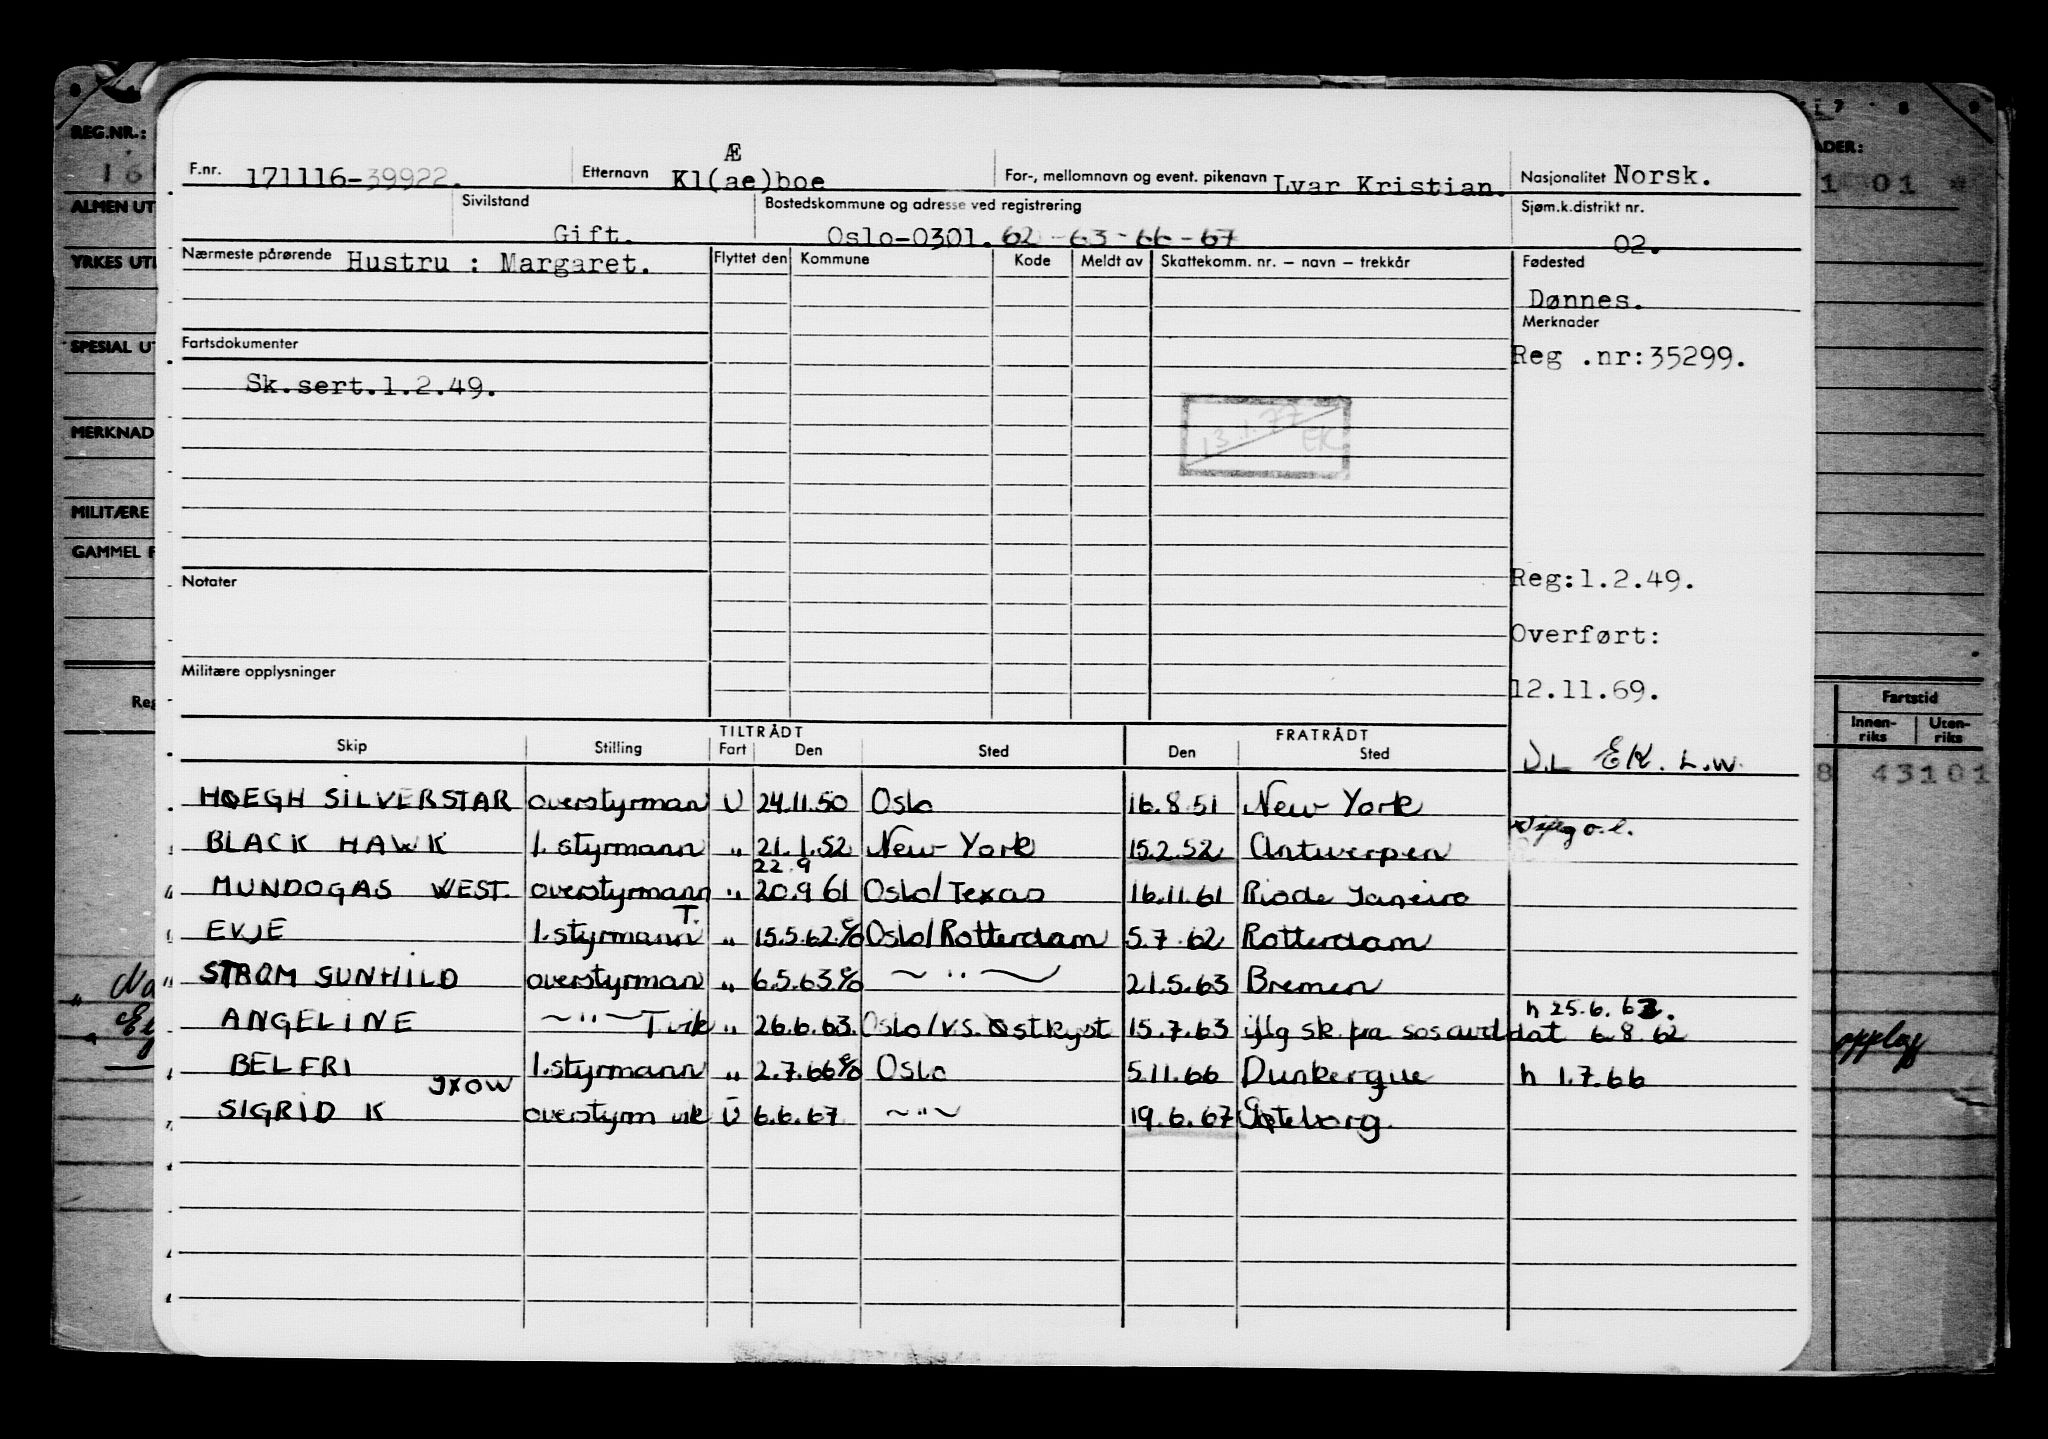 REG.NR.:
7 8 9
ADER:
Æ
F.nr. 171116-39922. Etternavn Kl(ae)boe For-, mellomnavn og event. pikenavn Lvar Kristian. Nasjonalitet Norsk.
1 01
ALMEN UT
Sivilstand Bostedskommune og adresse ved registrering Sjøm.k.distrikt nr.
Gift. Oslo-0301. 62-63-66-67 02.
YRKES UT
Nærmeste pårørende Hustru : Margaret. Flyttet den Kommune Kode Meldt av Skattekomm. nr. – navn – trekkår Fødested
Dønnes.
Merknader
SPESIAL UT
Fartsdokumenter Reg .nr:35299.
Sk.sert.1.2.49.
13.1.77
EK
MERKNAD
MILITÆRE
GAMMEL F
Notater Reg:1.2.49.
Overført:
Militære opplysninger
12.11.69.
Reg
Fartstid
Innen-riks Uten-riks
TILTRÅDT FRATRÅDT
Skip Stilling Fart Den Sted Den Sted
EK. L.W.
8 43101
HØEGH SILVERSTAR overstyrman U 24.11.50 Oslo 16.8.51 New York
BLACK HAWK 1. styrmann " 21.1.52 New York 15.2.52 Antwerpen
22.9
MUNDOGAS WEST overstyrmann " 20.9 61 Oslo/Texas 16.11.61 Riode Janeiro
T.
EVJE 1.styrmann " 15.5.62 % Oslo/Rotterdam 5.7.62 Rotterdam
STRØM GUNHILD overstyrman " 6.5.63 % ~ " ~ 21.5.63 Bremen
h 25.6.63.
ANGELINE ~ " ~ T vik " 26.6.63. Oslo/V.S. Østkyst 15.7.63 iflg sk. fra sosavd dat 6.8.62
BELFRI 1.styrmann " 2.7.66 % Oslo 5.11.66 Dunkergue h 1.7.66
JXOW
SIGRID K overstyrm vik U 6.6.67 ~ " ~ 19.6.67 Gøteborg